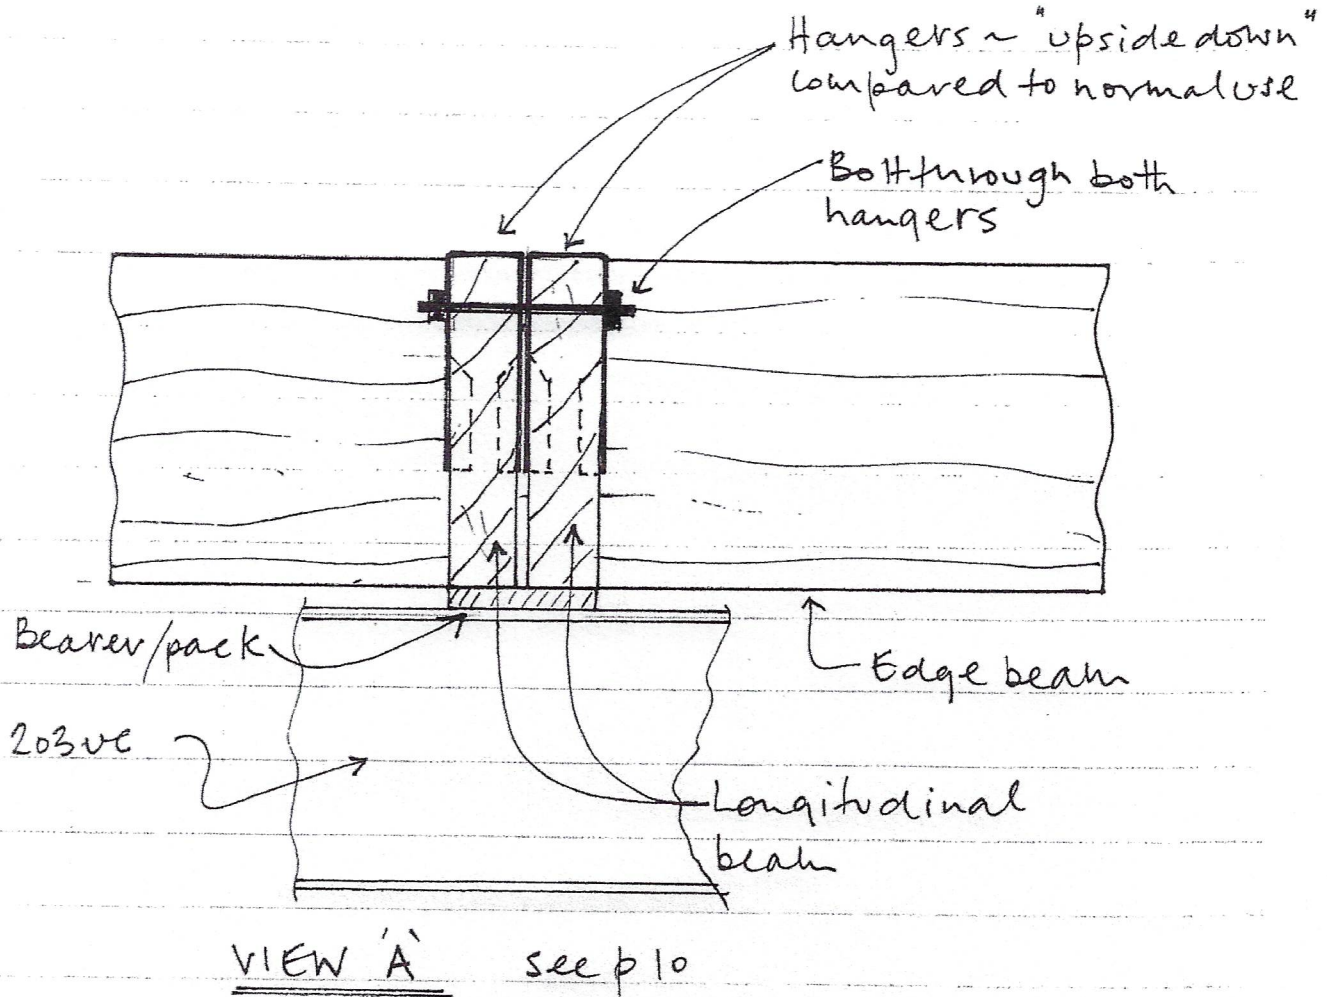 Hangers ~ "upside down"
compared to normal use
Bolt through both
hangers
Bearer/pack
Edge beam
203UC
Longitudinal
beam
VIEW 'A' see p 10